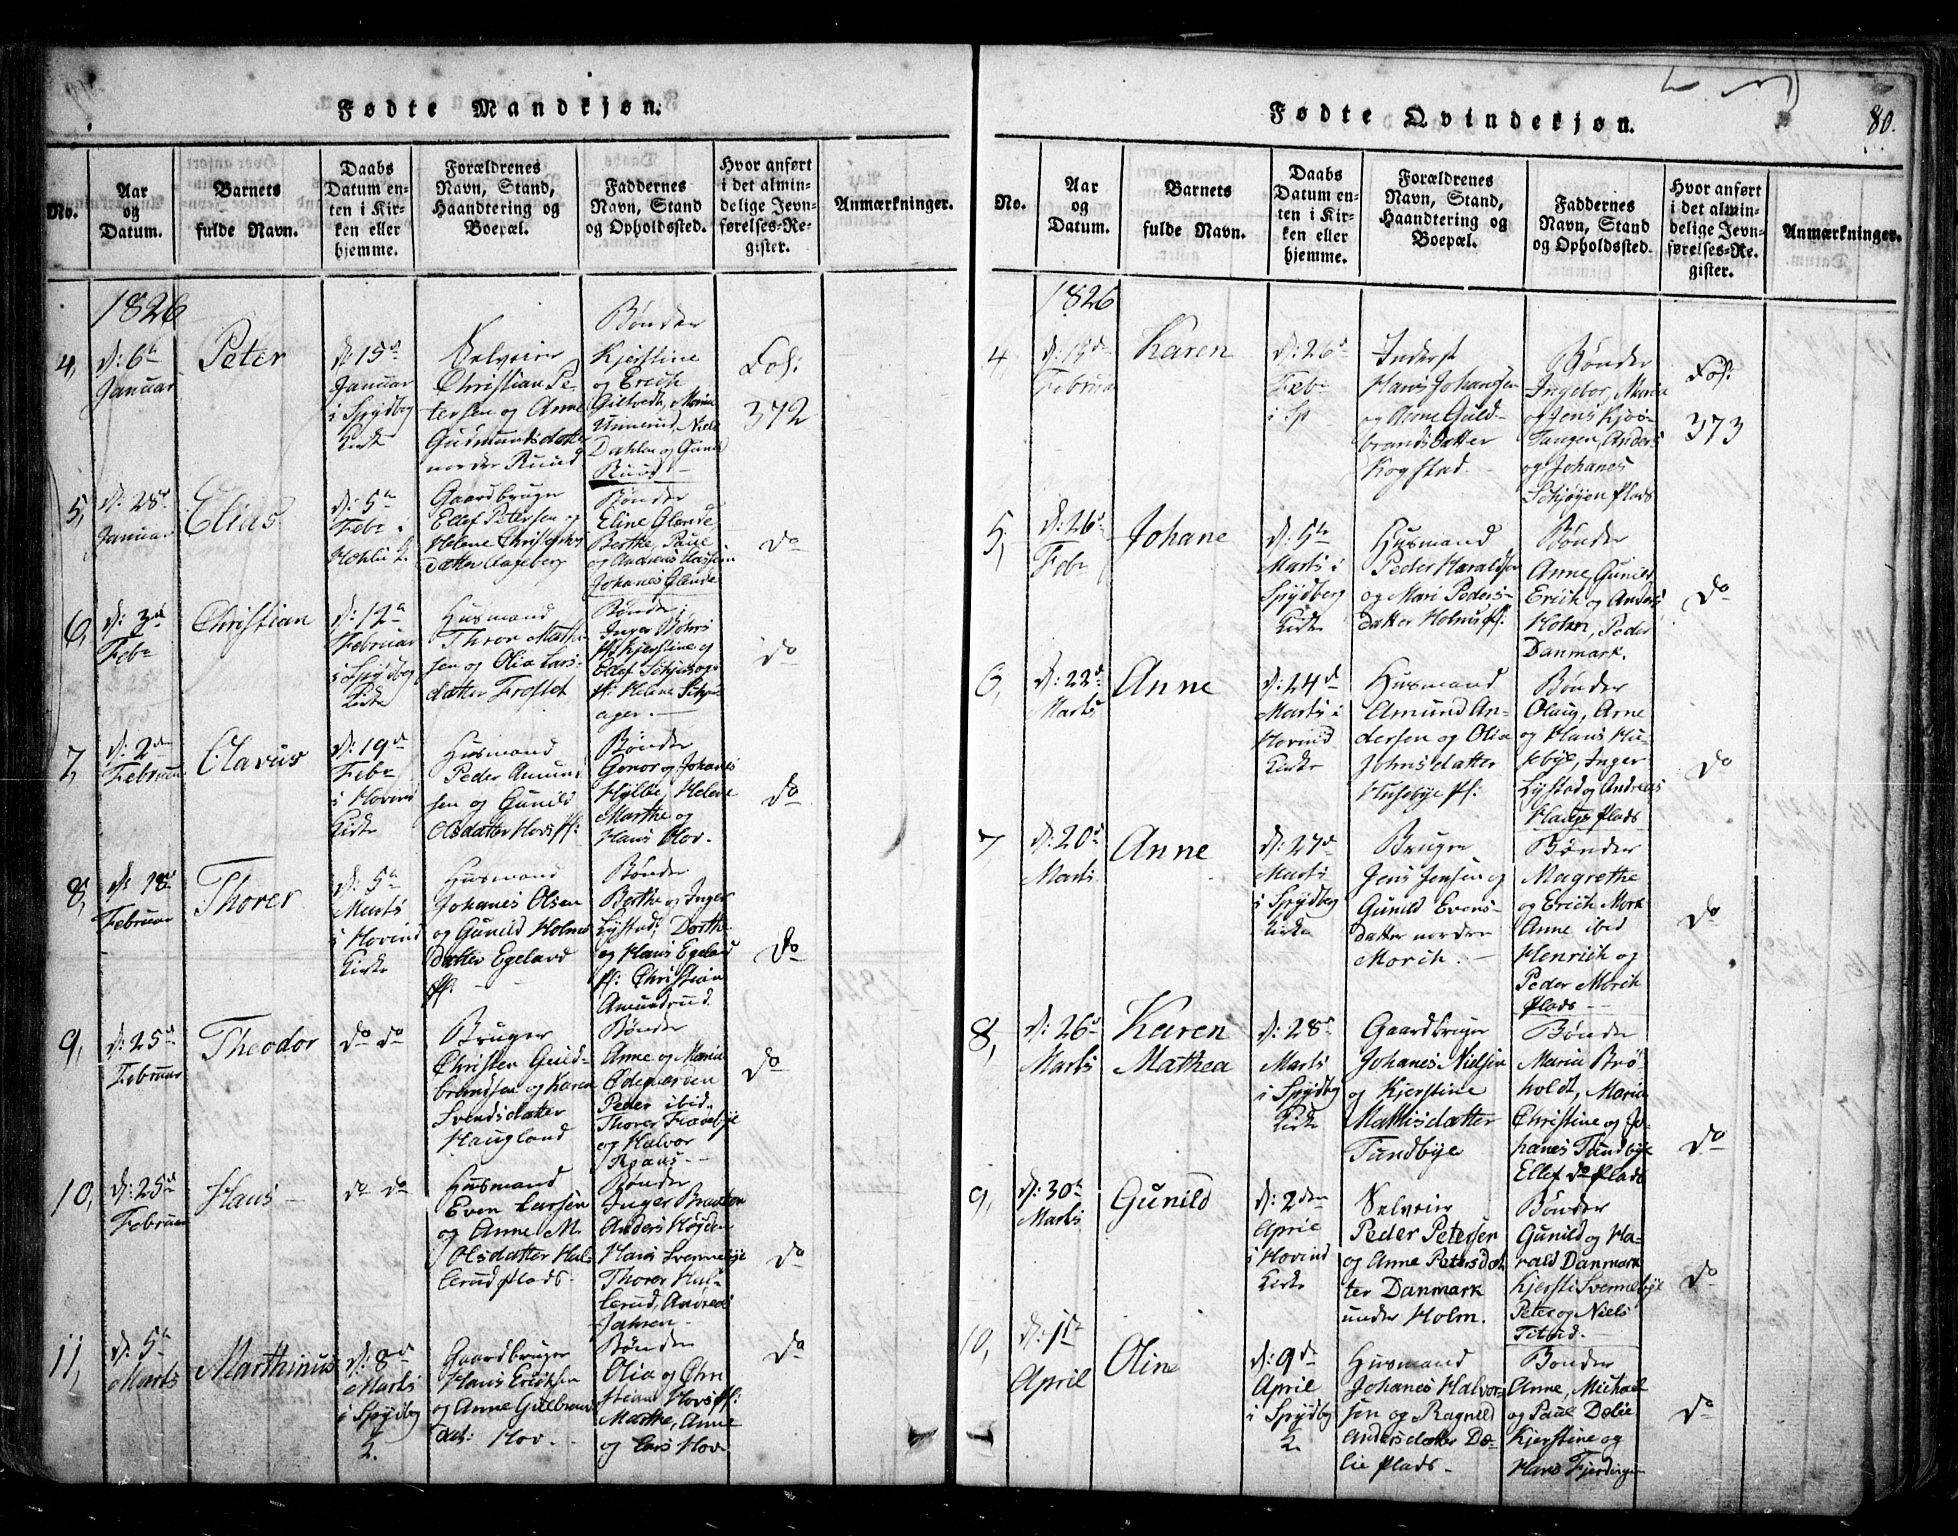 Fødte Mandkjøn.
No.
Aar
og
Datum.
Barnets
fulde Navn.
Daabs
Datum en-
ten i Kir-
ken eller
hjemme.
Forældrenes
Navn, Stand,
Haandtering og
Boepæl.
Faddernes
Navn, Stand
og Opholdssted.
Hvor anført
i det almin-
delige Jevn-
førelses-Re-
gister.
Anmærkninger.
1826
4,
d: 6te
Januar
Peter
d: 15de
Januar
i Spydbg
Kirke
Selveier
Christian Pe-
tersen og Anne
Gudmundsdatter
nordre Ruud
Bønder
Kjerstine
og Erich
Giltvedt, Maria
Unnerud, Niels
Dahlen og Guni
Ruud
Fol:
372
5,
d: 28de
Januar
Elias
d: 5te
Febr i
Gaardbruger
Ellef Petersen og
Helene Christophers
datter Aageberg
Bønder
Eline Glende
Berthe, Paul
og Andreas
Johanes Glende
do
6,
d: 3de
Febr
Christian
d: 12te
Februar
i Spydbg
Kirke
Husmand
Thron Mathi-
sen og Olia Lars-
datter Frostet
Bønder
Inger
pf: Kjerstine og
pf: Helene
ager.
do
7,
d: 2den
Februar
Olavus
d: 19de
Febr
i Hovind
Kirke
Husmand
Peder Amund
sen og Gunild
Olsdatter Hovs pf:
Bønder
Gonor og Johanes
Hyllie, Helene
Marthe og
Hans Hov.
do
8,
d: 18de
Februar
Thorer
d: 5te
Marts
i Hovind
Kirke
Husmand
Johanes Olsen
og Gunild Holmes
datter Egeland
pf:
Bønder
Berthe og Inger
Lystad, Dorthe
og Hans Egeland
pf: Christian
Amundrud.
do
9,
d: 25de
Februar
Theodor
do do
Bruger
Christen Guld-
brandsen og Karen
Svendsdatter
Haugland
Bønder
Anne og Maria
Ødegaarden
Peder ibid.
Thorer
og Halvor
do
10,
d: 25de
Februar
Hans
do do
Husmand
Even Larsen
og Anne M.
Olsdatter Hul-
lerud plads
Bønder
Inger
Anders
Hans Svennebye
Thorer Hul-
lerud, Andreas
Jahren
do
11,
d: 5te
Marts
Marthinus
d: 8de
Marts
i Spydbg
K.
Gaardbruger
Hans Erichsen
og Anne Gulbrands
dat: Hov.
Bønder
Olia og Chri
stian Hovs pf:
Marthe, Anne
og Lars Hov
do
Fødte Qvindekjøn.
80.
No.
Aar
og
Datum.
Barnets
fulde Navn.
Daabs
Datum en-
ten i Kir-
ken eller
hjemme.
Forældrenes
Navn, Stand,
Haandtering og
Boepæl.
Faddernes
Navn, Stand
og Opholdssted.
Hvor anført
i det almin-
delige Jevn-
førelses-Re-
gister.
Anmærkninger.
1826
4,
Februar
Karen
d: 26de
Febr
i Sp
Inderst
Hans Johansen
og Anne Guld-
brandsdatter
Kogstad.
Bønder
Ingebor, Maria
og Jens Kjos-
Tangen, Anders
og Johanes
Schjøyen plads
Fol:
373
5,
d: 26de
Febr
Johane
d: 5te
Marts i
Spydberg
Kirke
Husmand
Peder Haraldsen
og Mari Peders-
datter Holms pf:
Bønder
Anne, Gunild
Erich og Anders
Holm, Peder
Danmark.
do
6,
d: 22de
Marts
Anne
d: 24de
Marts i
Hovind
Kirke
Husmand
Amund An-
dersen og Olia
Johnsdatter
Husebye pf:
Bønder
Olaug, Arne
og Hans Hu-
sebye, Inger
Lystad og Andreas
Haugs plads
do
7
d: 20de
Marts
Anne
d: 27de
Marts
i Spydbg
Kirke
Bruger
Jens Jensen og
Gunild Evens-
datter nordre
Morch.
Bønder
Magrethe
og Erich Mork
Anne ibid
Henrich og
Peder Morch
plads
do
8,
d: 26de
Marts
Karen
Mathea
d: 28de
Marts
i Spydbg
Kirke
Gaardbruger
Johanes Nielsen
og Kjerstine
Mathisdatter
Tundbye
Bønder
Maria Brø-
holdt, Maria
Christine og Jo-
hanes Tundbye
Ellef do plads
do
9,
d: 30te
Marts
Gunild
d: 2den
April
i Hovind
Kirke
Selveier
Peder Petersen
og Anne Petersdat
ter Danmark
under Holm.
Bønder
Gunild og Ha-
rald Danmark
Kjersti Svennebye
Peter og Niels
do
10,
d: 1ste
April
Oline
d: 9de
April
i Spydbg
K.
Husmand
Johanes Halvor-
sen og Ragnild
Andersdatter Dæ-
lie plads
Bønder
Anne, Michael
og Paul Dælie
Kjerstine og
Hans Fjerdingen
do